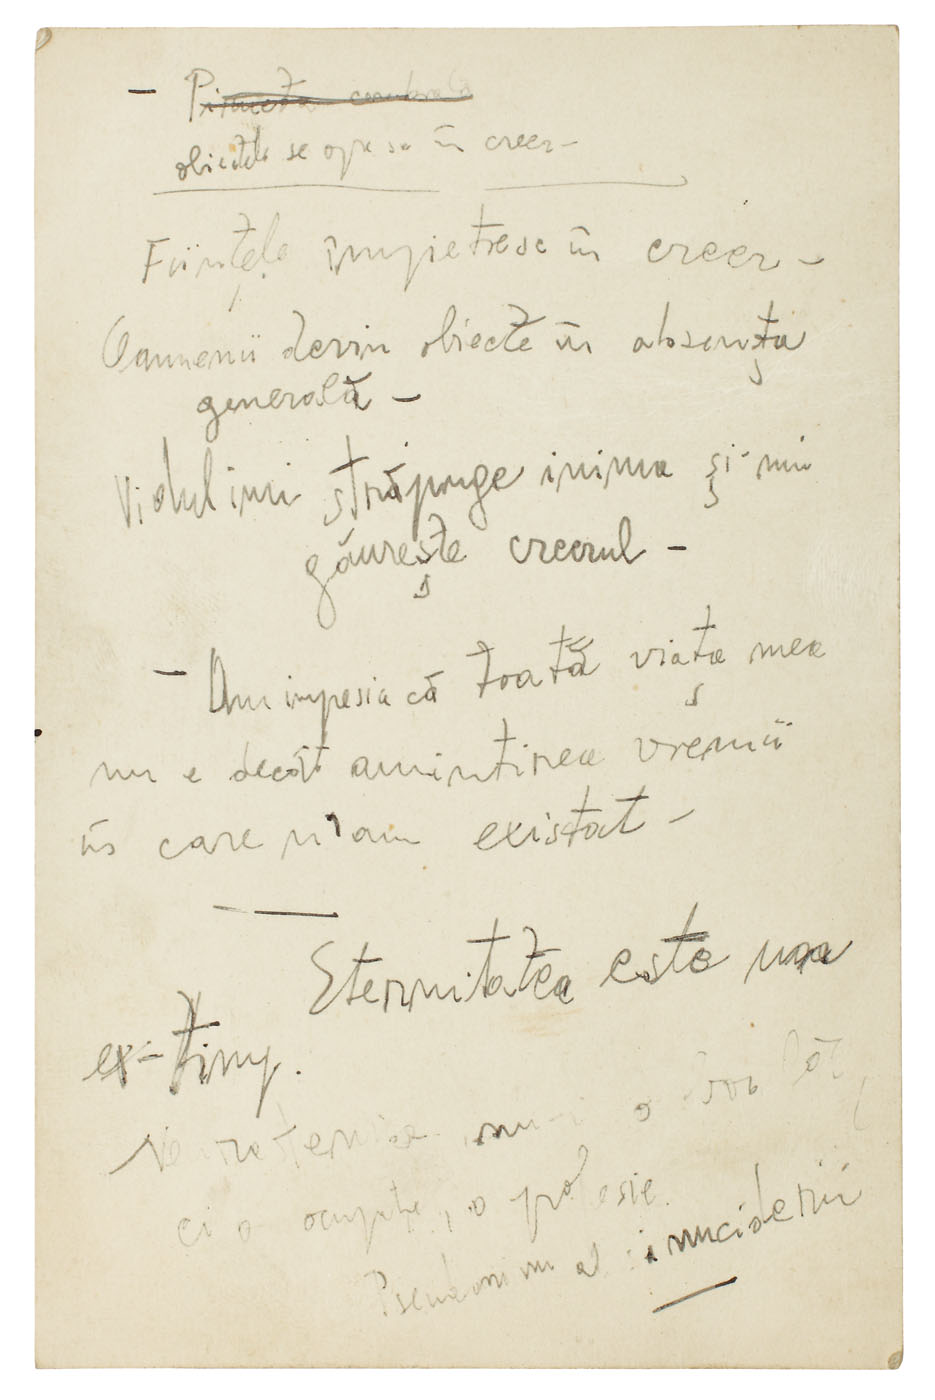 — Pirueta
obiectele se opresc în creer —
Ființele împietresc în creer —
Oamenii devin obiecte în absența
generală —
Vidul îmi străpunge inima și-mi
găurește creerul —
— Am impresia că toată viața mea
nu e decât amintirea vremii
în care n'am existat —
Eternitatea este un
ex-timp.
nu-i o boală,
ci o ocupație, o profesie.
Pseudonim al sinuciderii